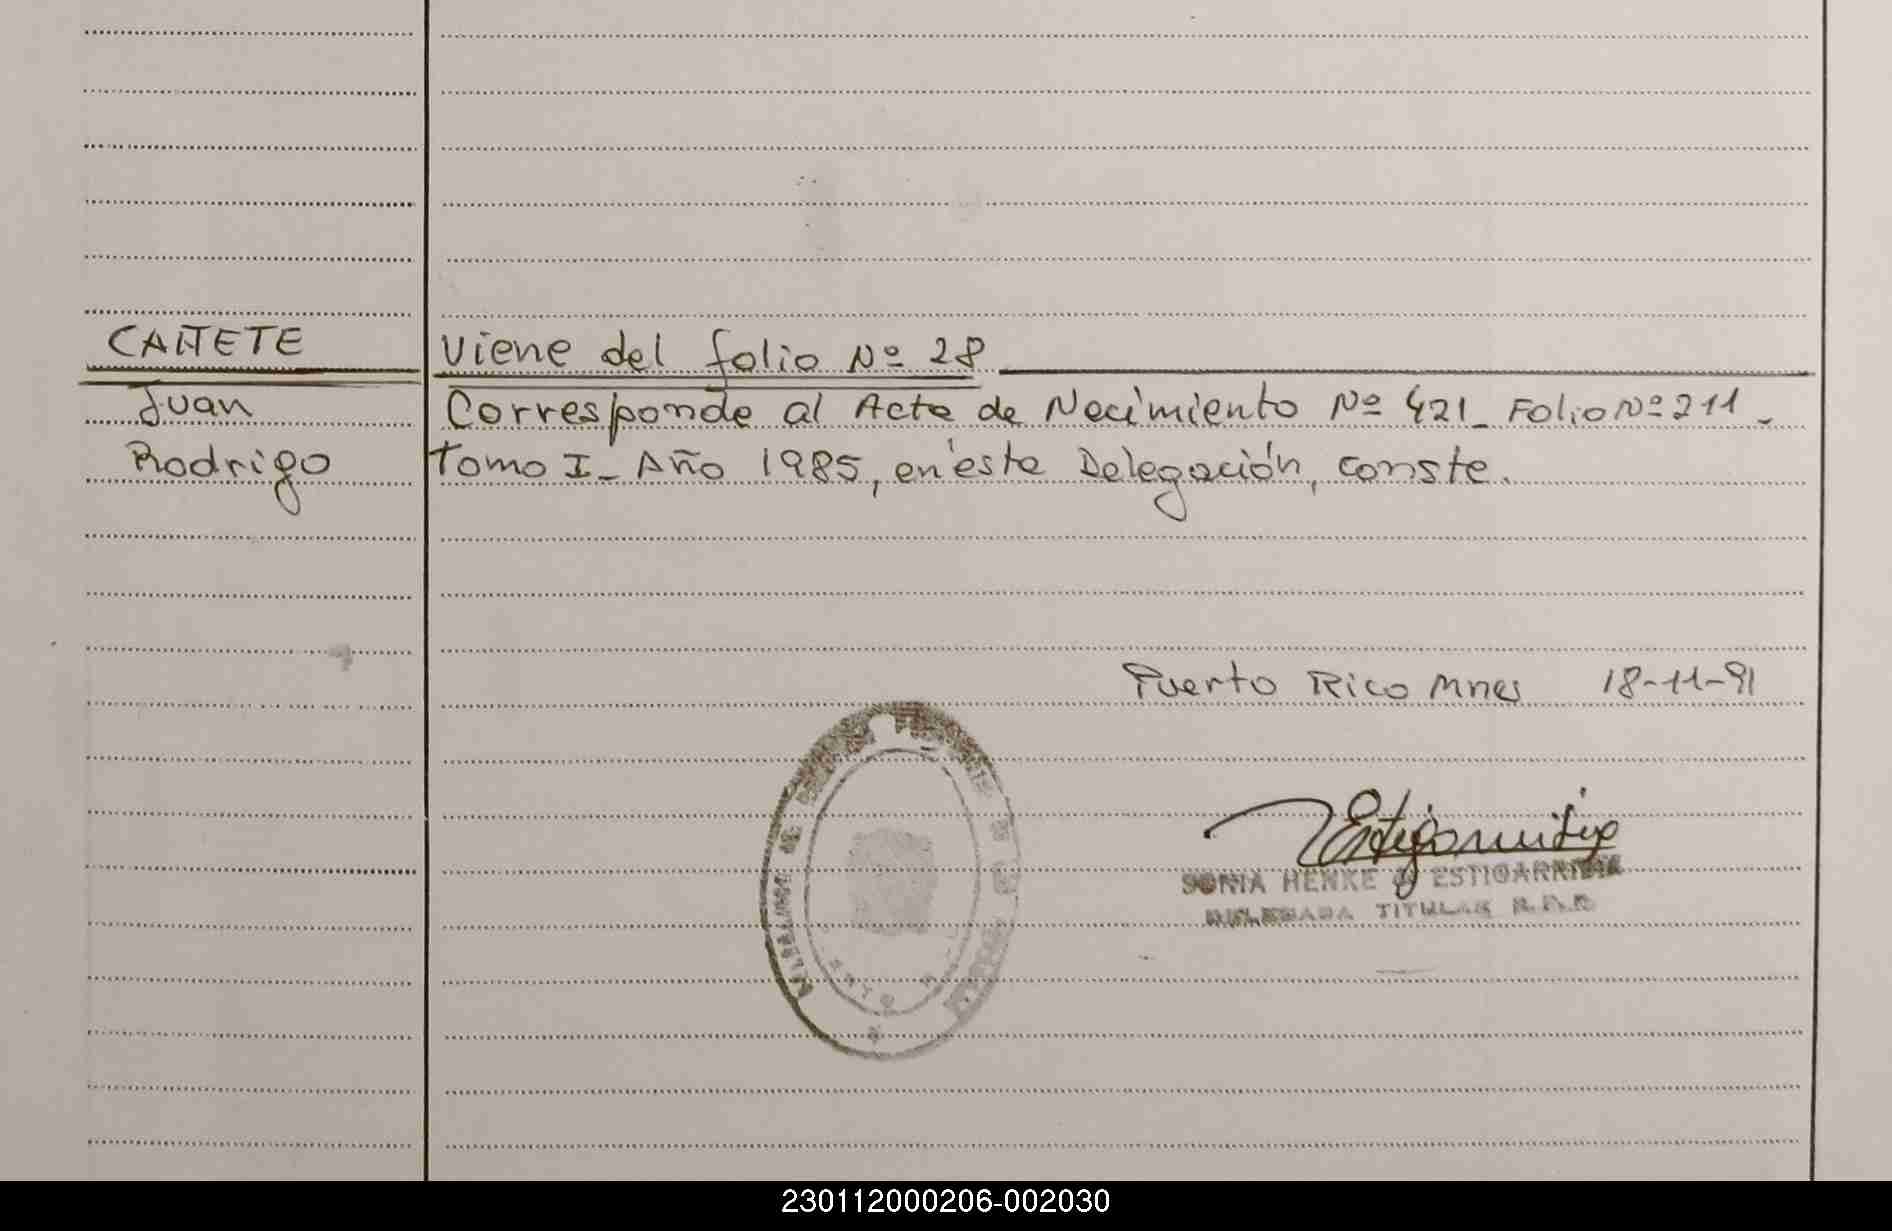 CAÑETE
Juan
Rodrigo
Viene del folio Nº 28
Corresponde al Acta de Nacimiento Nº 421_ Folio Nº 211_
Tomo I_ Año 1985, en esta Delegación, conste.
Puerto Rico Mnes 18-11-91
SONIA HENKE de ESTIGARRIBIA
DELEGADA TITULAR R.P.P.
230112000206-002030